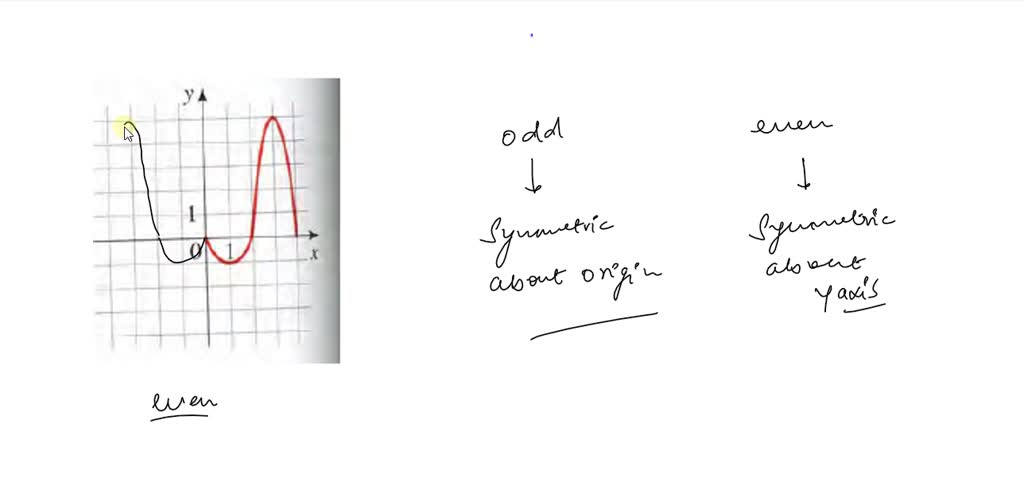 y
1
0 1
x
even
odd
↓
symmetric
about origin
even
↓
symmetric
about
y axis